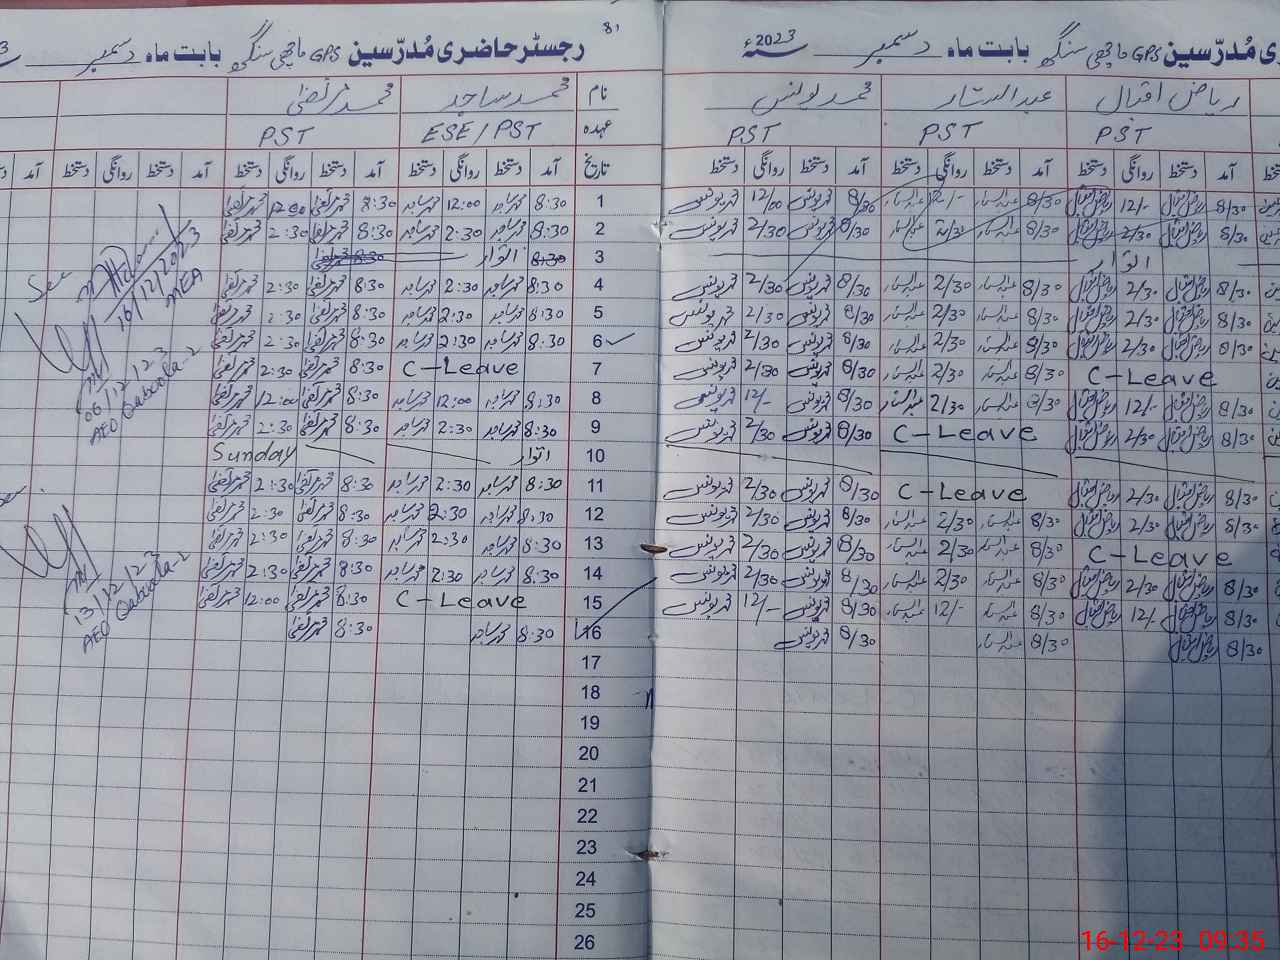 81
رجسٹر حاضری مُدرّسین GPS ماچھی سنگھ بابت ماہ دسمبر
ری مُدرّسین GPS ماچھی سنگھ بابت ماہ دسمبر 2023ء
نام محمد ساجد محمد مرتضیٰ
ریاض اقبال عبدالستار محمد یونس
عہدہ ESE/PST PST
PST PST PST
تاریخ آمد دستخط روانگی دستخط آمد دستخط روانگی دستخط آمد دستخط روانگی دستخط آمد
آمد دستخط روانگی دستخط آمد دستخط روانگی دستخط آمد دستخط روانگی دستخط
1 8:30 محمد ساجد 12:00 محمد ساجد 8:30 محمد مرتضیٰ 12:00 محمد مرتضیٰ
8/30 ریاض اقبال 12/- ریاض اقبال 8/30 عبدالستار 12/- عبدالستار 8/30 محمد یونس 12/00 محمد یونس
2 8:30 محمد ساجد 2:30 محمد ساجد 8:30 محمد مرتضیٰ 2:30 محمد مرتضیٰ
8/30 ریاض اقبال 2/30 ریاض اقبال 8/30 عبدالستار 2/30 عبدالستار 8/30 محمد یونس 2/30 محمد یونس
3 8:30 اتوار 8:30
اتوار
4 8:30 محمد ساجد 2:30 محمد ساجد 8:30 محمد مرتضیٰ 2:30 محمد مرتضیٰ
8/30 ریاض اقبال 2/30 ریاض اقبال 8/30 عبدالستار 2/30 عبدالستار 8/30 محمد یونس 2/30 محمد یونس
5 8:30 محمد ساجد 2:30 محمد ساجد 8:30 محمد مرتضیٰ 2:30 محمد مرتضیٰ
8/30 ریاض اقبال 2/30 ریاض اقبال 8/30 عبدالستار 2/30 عبدالستار 8/30 محمد یونس 2/30 محمد یونس
6 8:30 محمد ساجد 2:30 محمد ساجد 8:30 محمد مرتضیٰ 2:30 محمد مرتضیٰ
8/30 ریاض اقبال 2/30 ریاض اقبال 8/30 عبدالستار 2/30 عبدالستار 8/30 محمد یونس 2/30 محمد یونس
7 C-Leave 8:30 محمد مرتضیٰ 2:30 محمد مرتضیٰ
C-Leave 8/30 عبدالستار 2/30 عبدالستار 8/30 محمد یونس 2/30 محمد یونس
8 8:30 محمد ساجد 12:00 محمد ساجد 8:30 محمد مرتضیٰ 12:00 محمد مرتضیٰ
8/30 ریاض اقبال 12/- ریاض اقبال 8/30 عبدالستار 2/30 عبدالستار 8/30 محمد یونس 12/- محمد یونس
9 8:30 محمد ساجد 2:30 محمد ساجد 8:30 محمد مرتضیٰ 2:30 محمد مرتضیٰ
8/30 ریاض اقبال 2/30 ریاض اقبال C-Leave 8/30 محمد یونس 2/30 محمد یونس
10 اتوار Sunday
11 8:30 محمد ساجد 2:30 محمد ساجد 8:30 محمد مرتضیٰ 2:30 محمد مرتضیٰ
8/30 ریاض اقبال 2/30 ریاض اقبال C-Leave 8/30 محمد یونس 2/30 محمد یونس
12 8:30 محمد ساجد 2:30 محمد ساجد 8:30 محمد مرتضیٰ 2:30 محمد مرتضیٰ
8/30 ریاض اقبال 2/30 ریاض اقبال 8/30 عبدالستار 2/30 عبدالستار 8/30 محمد یونس 2/30 محمد یونس
13 8:30 محمد ساجد 2:30 محمد ساجد 8:30 محمد مرتضیٰ 2:30 محمد مرتضیٰ
C-Leave 8/30 عبدالستار 2/30 عبدالستار 8/30 محمد یونس 2/30 محمد یونس
14 8:30 محمد ساجد 2:30 محمد ساجد 8:30 محمد مرتضیٰ 2:30 محمد مرتضیٰ
8/30 ریاض اقبال 2/30 ریاض اقبال 8/30 عبدالستار 2/30 عبدالستار 8/30 محمد یونس 2/30 محمد یونس
15 C-Leave 8:30 محمد مرتضیٰ 12:00 محمد مرتضیٰ
8/30 ریاض اقبال 12/- ریاض اقبال 8/30 عبدالستار 12/- عبدالستار 8/30 محمد یونس 12/- محمد یونس
16 8:30 محمد ساجد 8:30 محمد مرتضیٰ
8/30 ریاض اقبال 8/30 عبدالستار 8/30 محمد یونس
17
18
19
20
21
22
23
24
25
26
See
16/12/2023
MEA
06/12/23
AEO Qaboola-2
13/12/23
AEO Qaboola-2
16-12-23 09:35